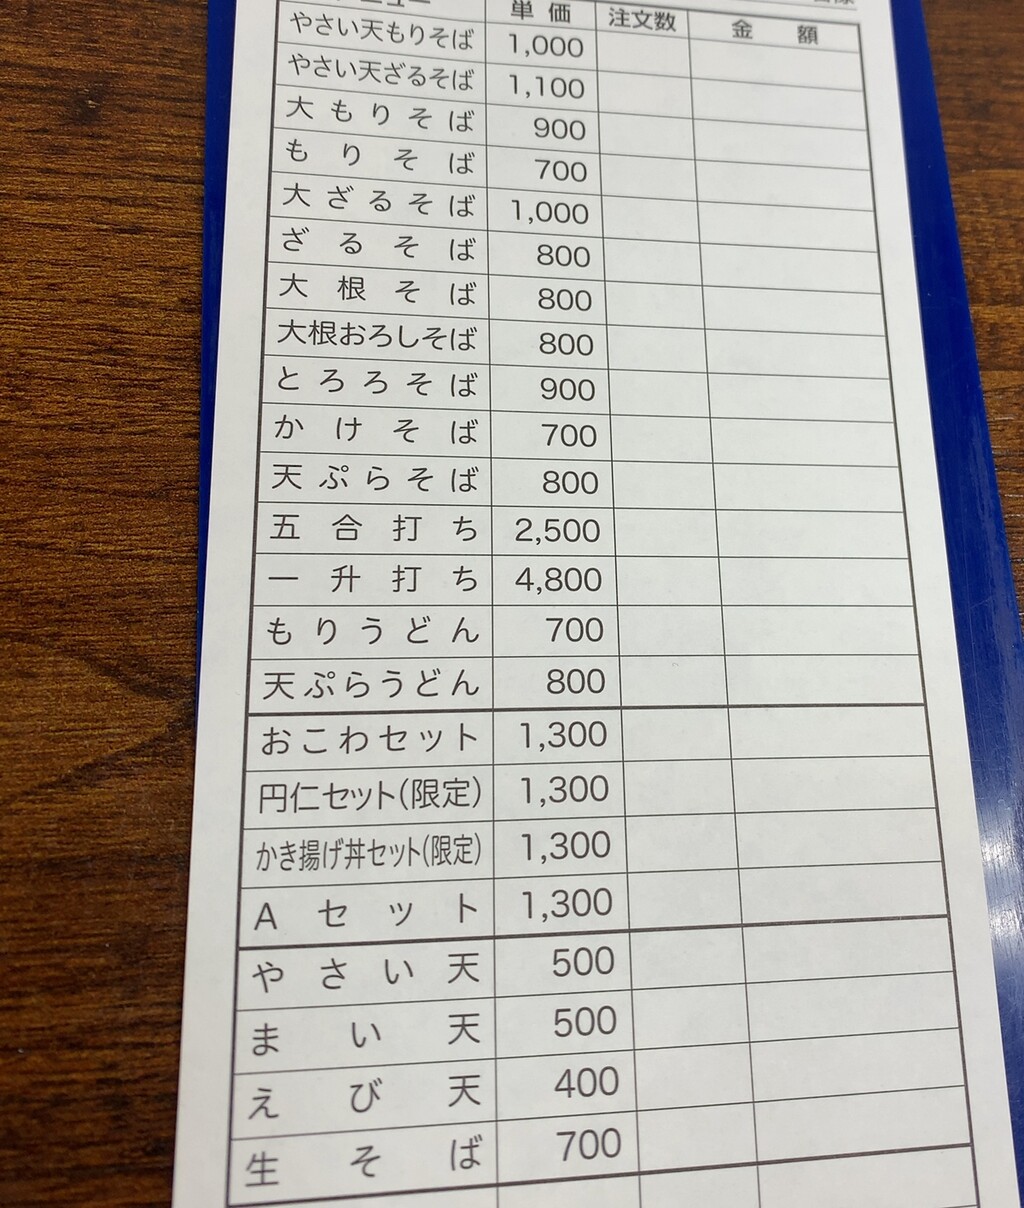 単価 注文数 金額
やさい天もりそば 1,000
やさい天ざるそば 1,100
大もりそば 900
もりそば 700
大ざるそば 1,000
ざるそば 800
大根そば 800
大根おろしそば 800
とろろそば 900
かけそば 700
天ぷらそば 800
五合打ち 2,500
一升打ち 4,800
もりうどん 700
天ぷらうどん 800
おこわセット 1,300
円仁セット(限定) 1,300
かき揚げ丼セット(限定) 1,300
Aセット 1,300
やさい天 500
まい天 500
えび天 400
生そば 700